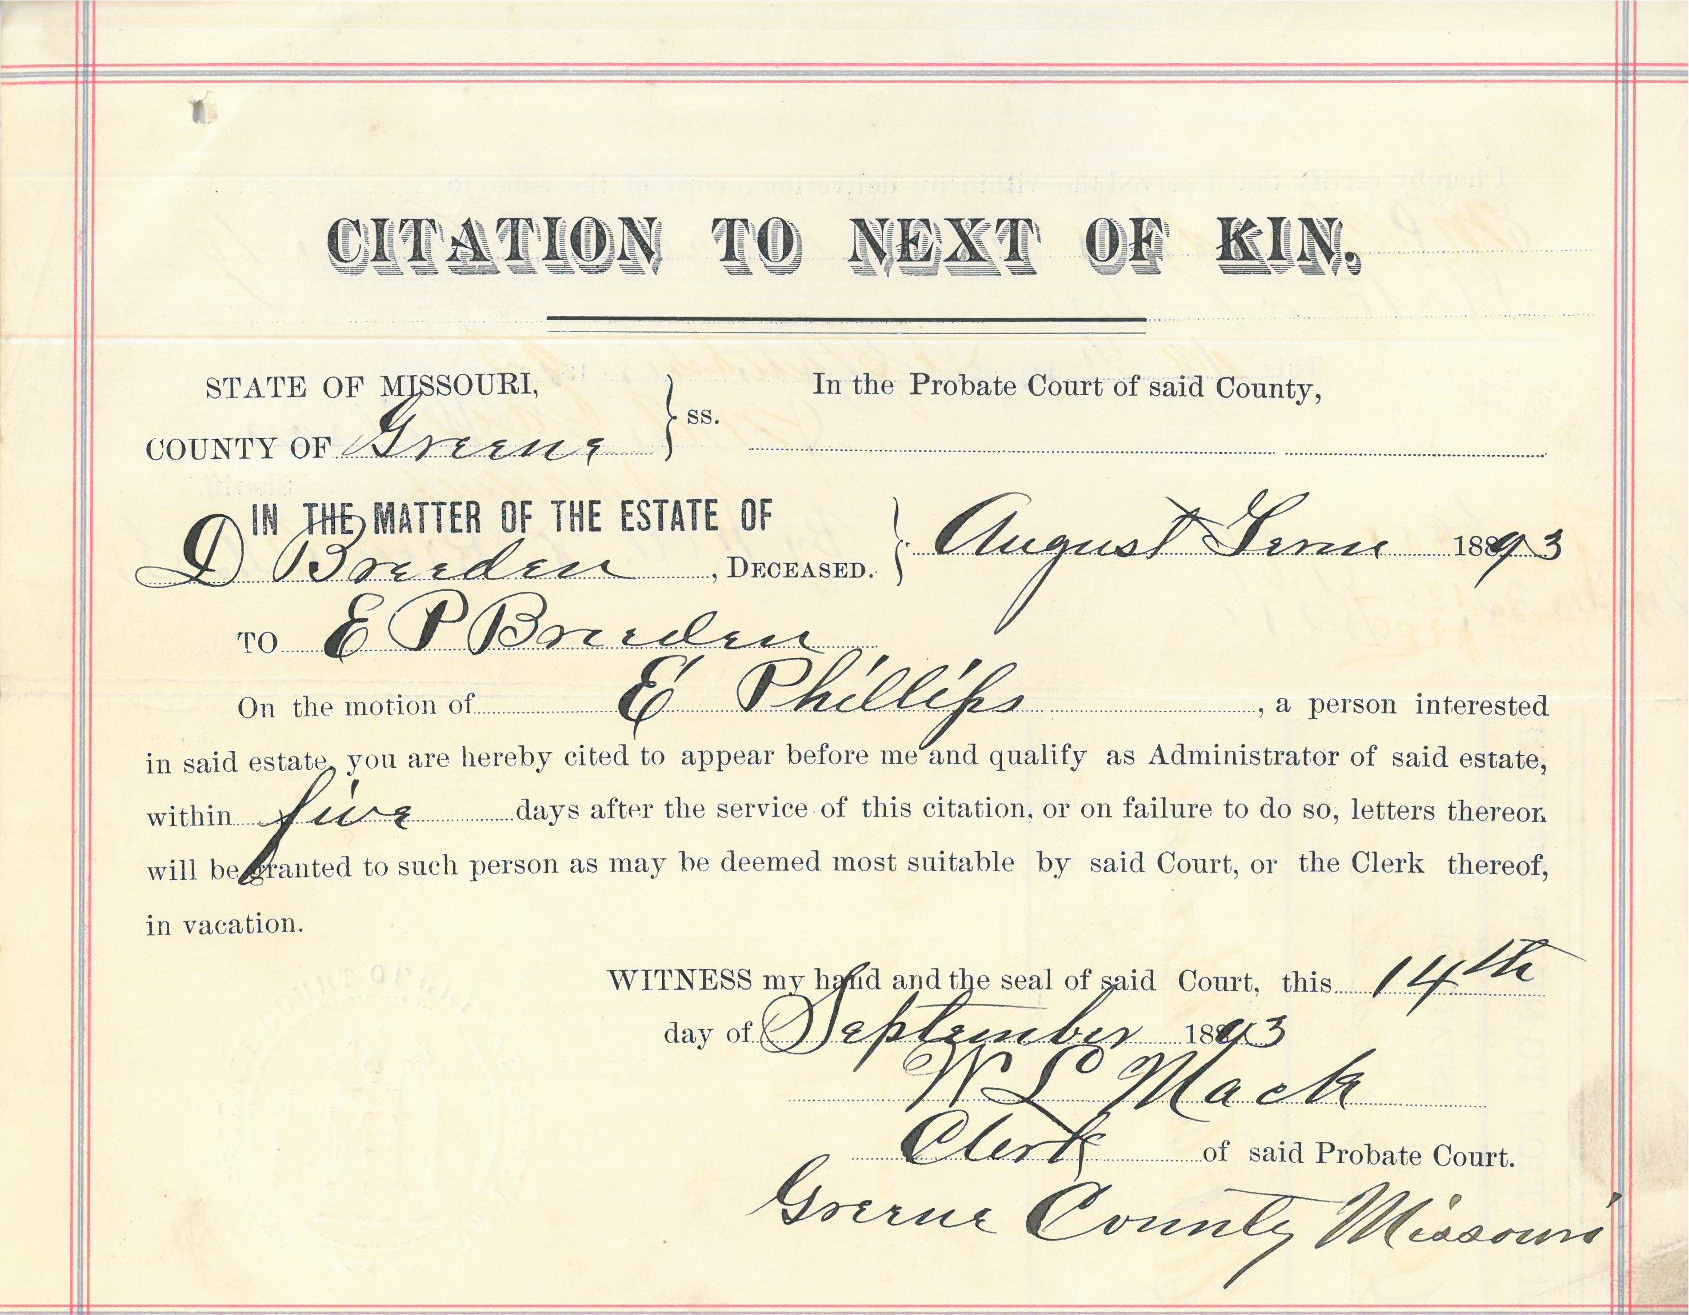 CITATION TO NEXT OF KIN.
STATE OF MISSOURI,
COUNTY OF Greene
ss.
In the Probate Court of said County,
IN THE MATTER OF THE ESTATE OF
D Breeden, DECEASED.
August Term 1893
TO E P Breeden
On the motion of E Phillips, a person interested
in said estate, you are hereby cited to appear before me and qualify as Administrator of said estate,
within five days after the service of this citation, or on failure to do so, letters thereon
will be granted to such person as may be deemed most suitable by said Court, or the Clerk thereof,
in vacation.
WITNESS my hand and the seal of said Court, this 14th
day of September 1893
W L Mack
Clerk of said Probate Court.
Greene County Missouri